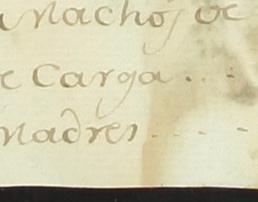 Machos de
de Carga . . .
Madres . . . .